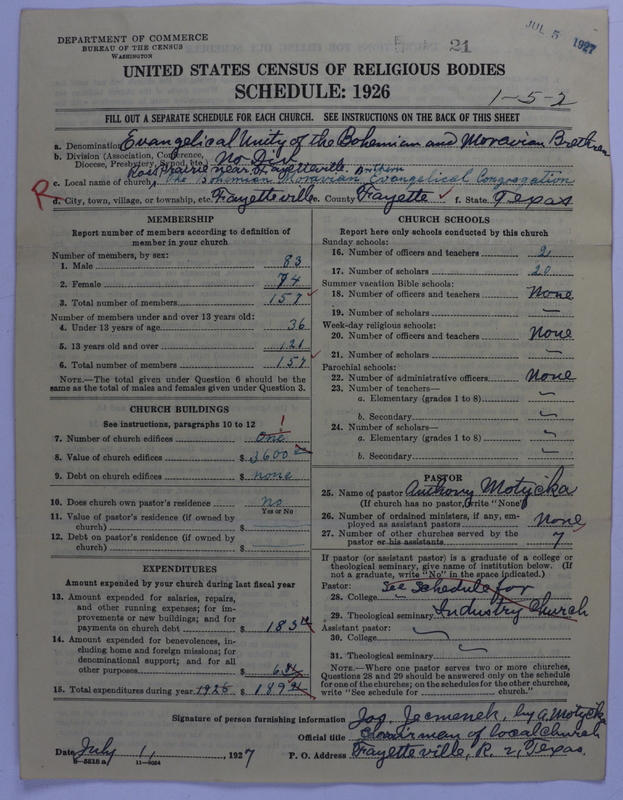 DEPARTMENT OF COMMERCE
BUREAU OF THE CENSUS
WASHINGTON
21
JUL 5 1927
UNITED STATES CENSUS OF RELIGIOUS BODIES
SCHEDULE: 1926
1-5-2
FILL OUT A SEPARATE SCHEDULE FOR EACH CHURCH. SEE INSTRUCTIONS ON THE BACK OF THIS SHEET
a. Denomination Evangelical Unity of the Bohemian and Moravian Brethren
b. Division (Association, Conference, Diocese, Presbytery, Synod, etc.) No Div
Ross Prairie near Fayetteville. Anthem
c. Local name of church The Bohemian Moravian Evangelical Congregation
R
d. City, town, village, or township, etc. Fayetteville e. County Fayette f. State Texas
MEMBERSHIP
Report number of members according to definition of member in your church
Number of members, by sex:
1. Male 83
2. Female 74
3. Total number of members 157
Number of members under and over 13 years old:
4. Under 13 years of age 36
5. 13 years old and over 121
6. Total number of members 157
NOTE.—The total given under Question 6 should be the same as the total of males and females given under Question 3.
CHURCH BUILDINGS
See instructions, paragraphs 10 to 12
7. Number of church edifices One 1
8. Value of church edifices $ 3600
9. Debt on church edifices $ none
10. Does church own pastor's residence No
Yes or No
11. Value of pastor's residence (if owned by church) $
12. Debt on pastor's residence (if owned by church) $
EXPENDITURES
Amount expended by your church during last fiscal year
13. Amount expended for salaries, repairs, and other running expenses; for improvements or new buildings; and for payments on church debt $ 183
14. Amount expended for benevolences, including home and foreign missions; for denominational support; and for all other purposes $ 6
15. Total expenditures during year 1925 $ 189
CHURCH SCHOOLS
Report here only schools conducted by this church
Sunday schools:
16. Number of officers and teachers 2
17. Number of scholars 20
Summer vacation Bible schools:
18. Number of officers and teachers None
19. Number of scholars —
Week-day religious schools:
20. Number of officers and teachers None
21. Number of scholars —
Parochial schools:
22. Number of administrative officers None
23. Number of teachers—
a. Elementary (grades 1 to 8) —
b. Secondary —
24. Number of scholars—
a. Elementary (grades 1 to 8) —
b. Secondary —
PASTOR
25. Name of pastor Anthony Motycka
(If church has no pastor, write "None")
26. Number of ordained ministers, if any, employed as assistant pastors None
27. Number of other churches served by the pastor or his assistants 7
If pastor (or assistant pastor) is a graduate of a college or theological seminary, give name of institution below. (If not a graduate, write "No" in the space indicated.)
Pastor: See Schedule for
28. College
29. Theological seminary Industry Church
Assistant pastor:
30. College —
31. Theological seminary —
NOTE.—Where one pastor serves two or more churches, Questions 28 and 29 should be answered only on the schedule for one of the churches; on the schedules for the other churches, write "See schedule for church."
Signature of person furnishing information Jos. Jecmenek, by A. Motycka
Official title Chairman of local church
Date July 1, 1927 P. O. Address Fayetteville, R. 2, Texas.
11-9034